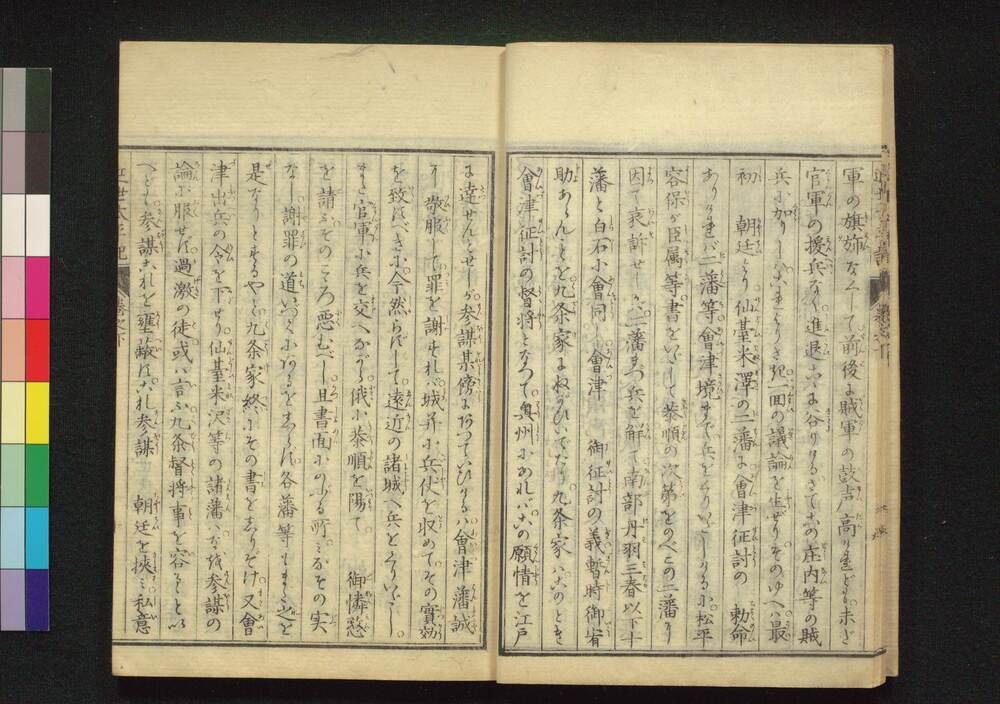 軍の旗旆なくて前後は賊軍の鼓声高けれども未だ
官軍の援兵なく進退こゝに谷りけるさてこの庄内等の賊
兵に加りしによりさき一固の議論を生ぜりそのゆへは最
初 朝廷より仙臺米澤の二藩に會津征討の 勅命
ありければ二藩等會津境まで兵をくりいだしけるに松平
容保が臣属等書をいだして恭順の次第をのべこの二藩に
因て哀訴せしかば二藩まづ兵を解て南部丹羽三春以下十
藩と白石に會同し會津 御征討の義暫時御宥
助あらんことを九条家にねがひいでたり九条家はこのとき
會津征討の督将となつて奥州にあればこの願情を江戸
に達せんとせしが参謀某傍にあつていひけるは會津藩誠
に敬服して罪を謝すれば城并に兵仗を収めてその實効
を致すべきに今然らずして遠近の諸城へ兵をくりいだし
また官軍に兵を交へながら俄に恭順を陽て 御憐愍
を請ふそのこゝろ悪むべし且書面にのする所みなその実
なし謝罪の道いづくにあるをしらず各藩等もまた之を
是なりとするやと九条家終にその書をしりぞけ又會
津出兵の令を下せり仙臺米沢等の諸藩はなほ参謀の
論に服せず過激の徒或は言ふ九条督将事を容るゝといへ
へども参謀これを壅蔽すこれ参謀 朝廷を挾み私意
近世太平記 巻之下